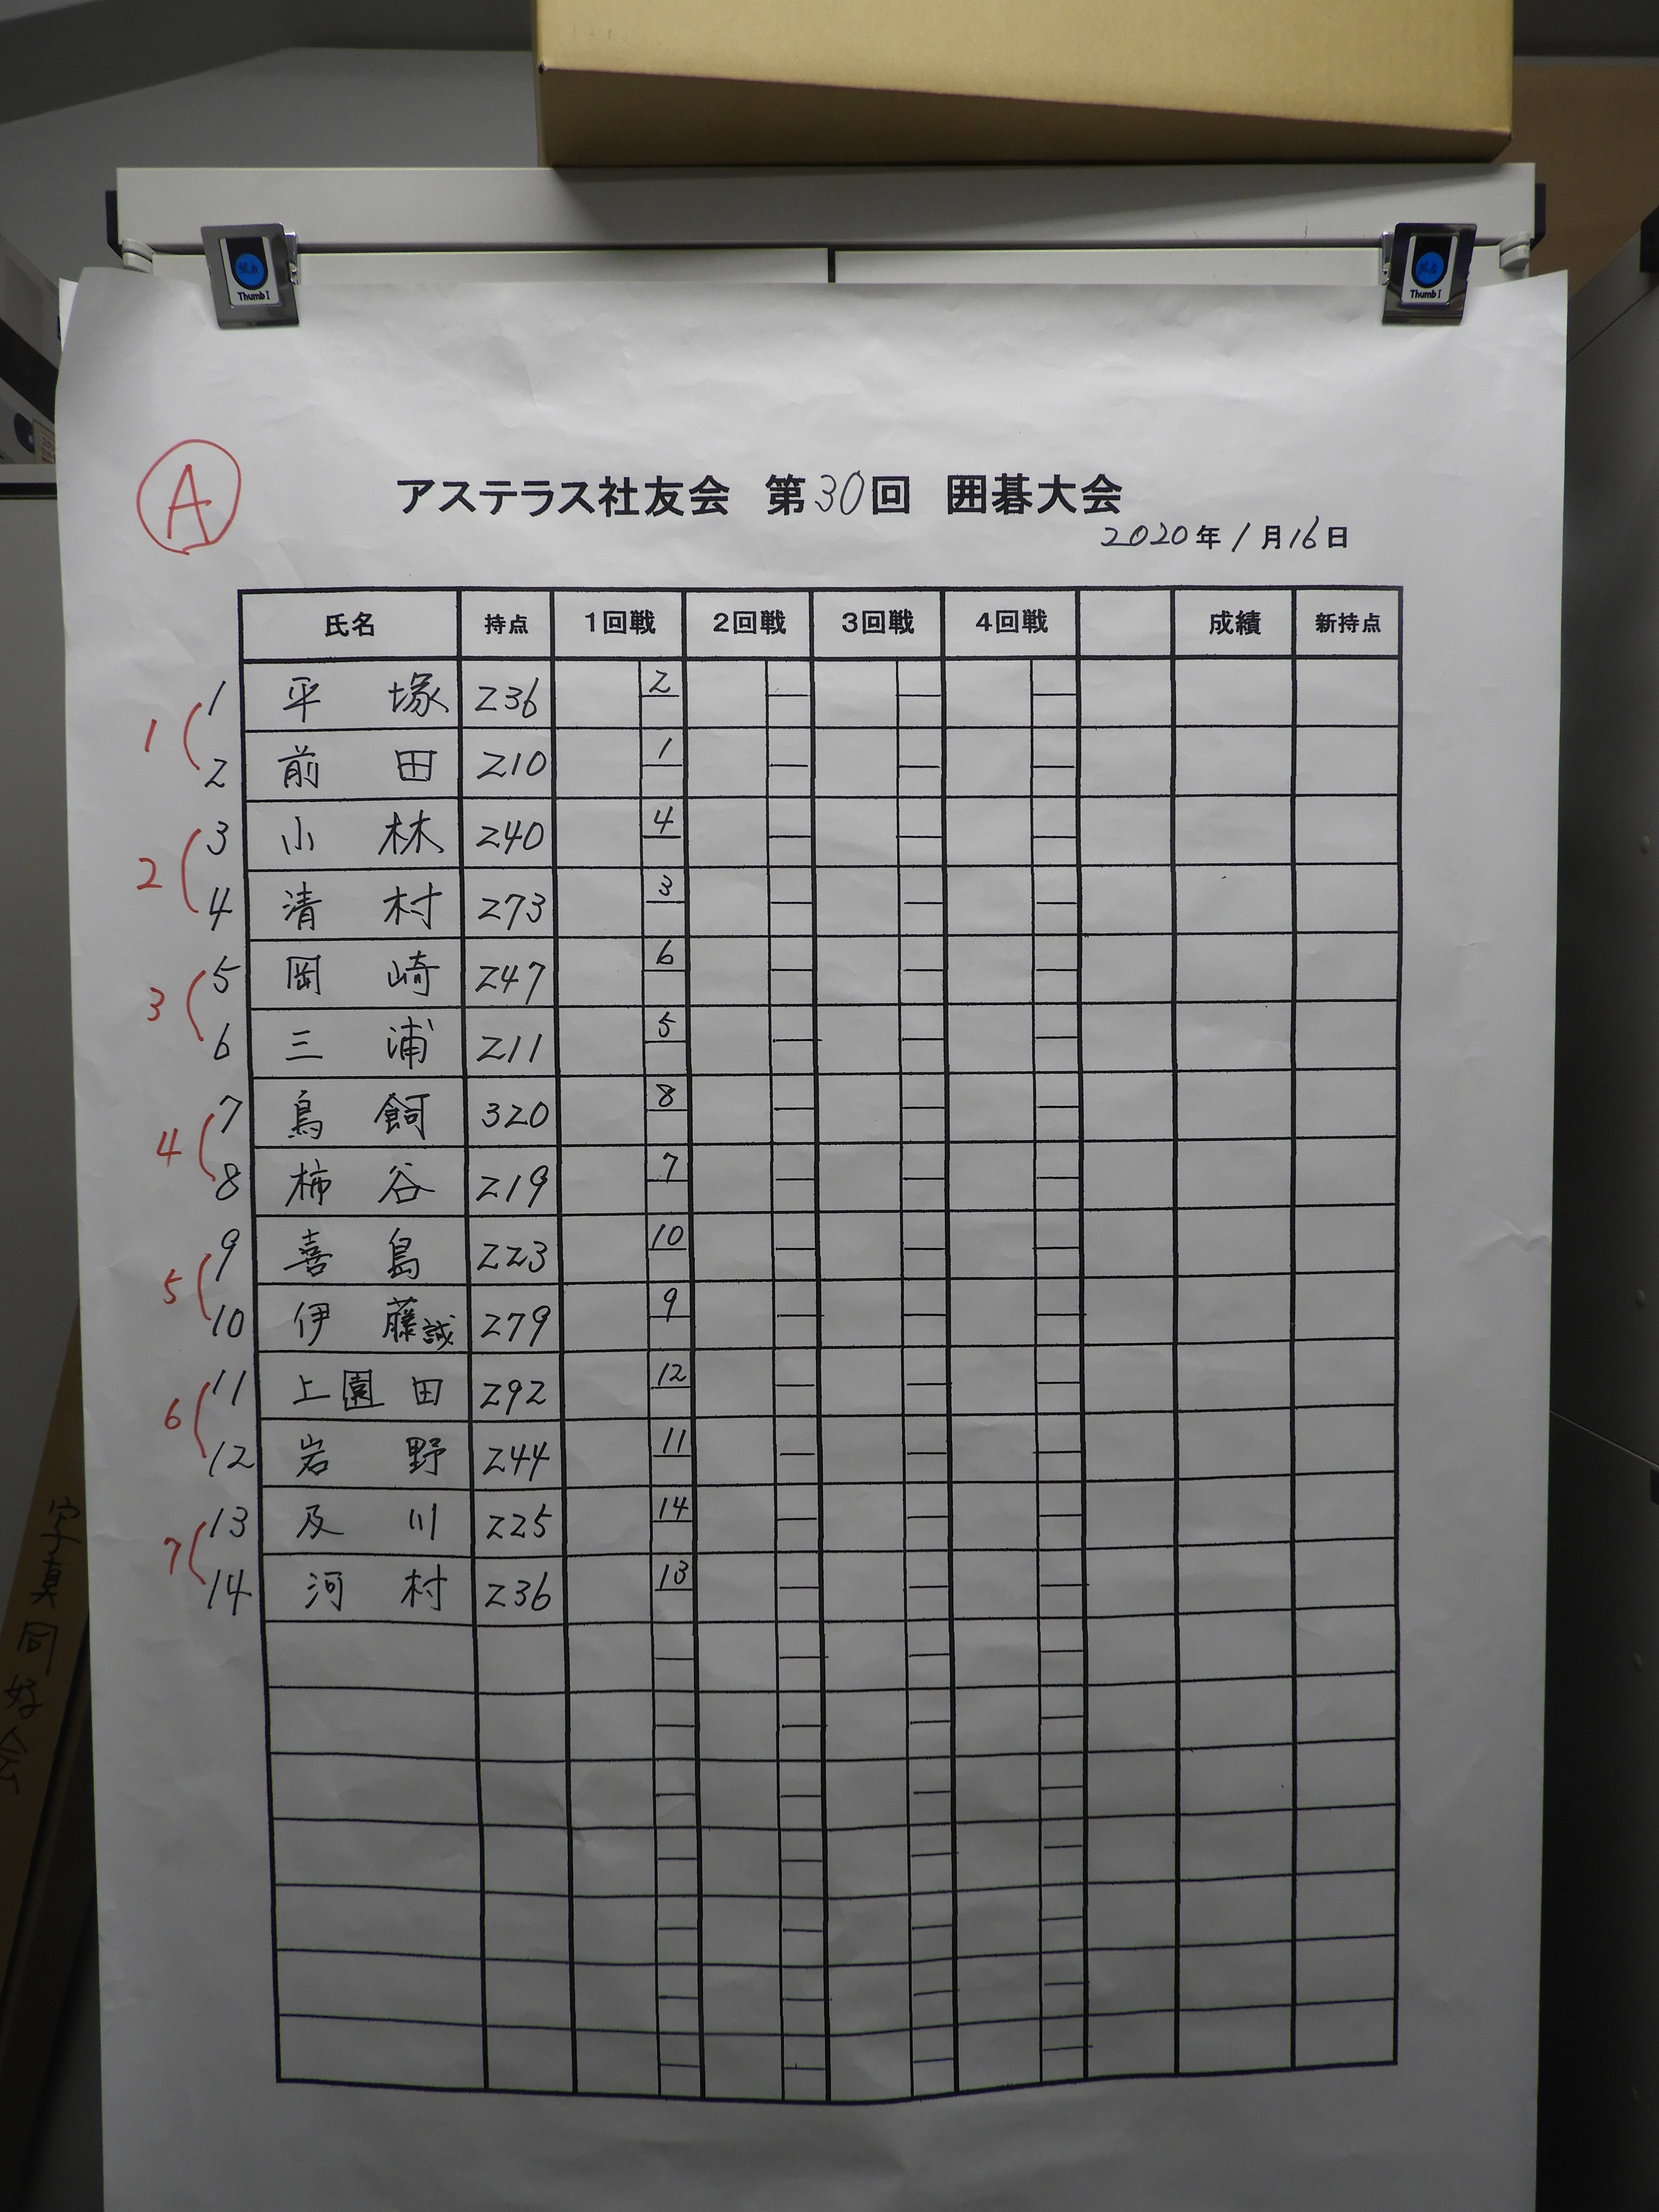 Thumb I
Thumb I
A
アステラス社友会 第30回 囲碁大会
2020年1月16日
氏名 持点 1回戦 2回戦 3回戦 4回戦 成績 新持点
1 1 平塚 236 2
2 前田 210 1
2 3 小林 240 4
4 清村 273 3
3 5 岡崎 247 6
6 三浦 211 5
4 7 鳥飼 320 8
8 柿谷 219 7
5 9 喜島 223 10
10 伊藤誠 279 9
6 11 上園田 292 12
12 岩野 244 11
7 13 及川 225 14
14 河村 236 13
写真同好会